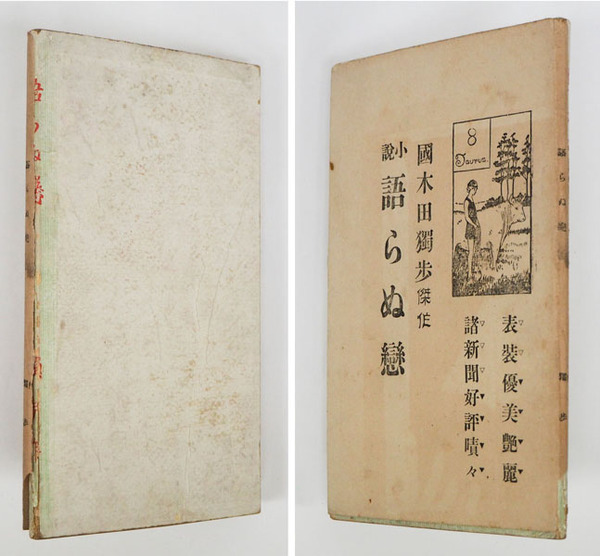 語らぬ戀
8
Taurus.
表装優美艶麗
諸新聞好評嘖々
國木田獨歩傑作
小説 語らぬ戀
語らぬ戀